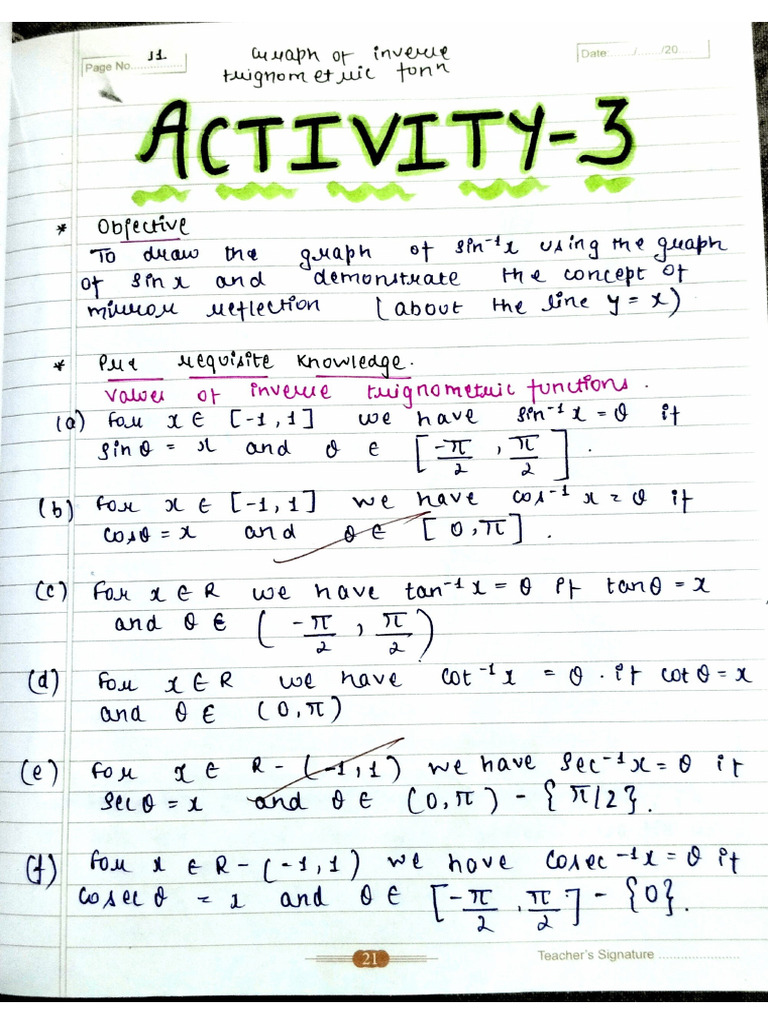 Page No. 11
Graph of inverse
trignometric fonn
Date: ....../....../20......
ACTIVITY-3
* Objective
To draw the graph of sin⁻¹x using the graph
of sin x and demonstrate the concept of
mirror reflection (about the line y = x)
* Pre requisite Knowledge.
Values of inverse trignometric functions.
(a) for x ∈ [-1, 1] we have sin⁻¹x = θ if
sin θ = x and θ ∈ [-π/2, π/2].
(b) for x ∈ [-1, 1] we have cos⁻¹ x = θ if
cosθ = x and θ ∈ [0, π].
(c) for x ∈ R we have tan⁻¹x = θ if tanθ = x
and θ ∈ (-π/2, π/2)
(d) for x ∈ R we have cot⁻¹x = θ . if cot θ = x
and θ ∈ (0, π)
(e) for x ∈ R - (-1, 1) we have sec⁻¹x = θ if
sec θ = x and θ ∈ (0, π) - {π/2}.
(f) for x ∈ R - (-1, 1) we have cosec⁻¹x = θ if
cosec θ = x and θ ∈ [-π/2, π/2] - {0}.
21
Teacher's Signature ....................